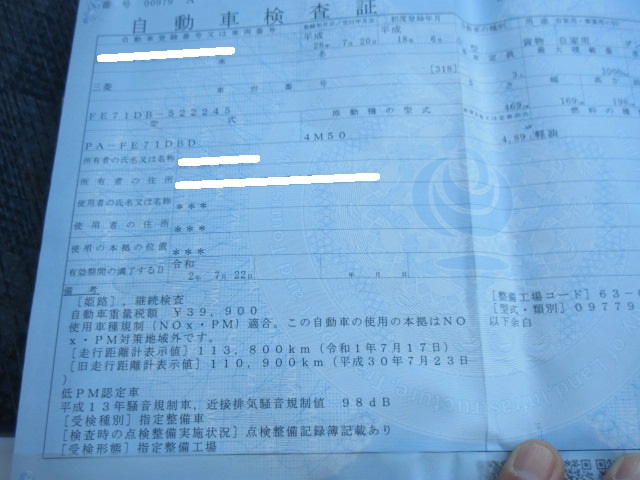 番号 00979 A
自動車検査証
自動車登録番号又は車両番号
初度登録年月
平成 28年 7月 20日
平成 18年 6月
貨物 自家用
車名
三菱
[318]
3人
車台番号
FE71DB-522245
型式
原動機の型式
469cm 169cm
PA-FE71DBD
4M50
4.89 軽油
所有者の氏名又は名称
所有者の住所
使用者の氏名又は名称 ***
使用者の住所 ***
使用の本拠の位置 ***
有効期間の満了する日 令和 2年 7月 22日
年 月 日
備考
[姫路], 継続検査
自動車重量税額 ¥39,900
使用車種規制(NOx・PM)適合。この自動車の使用の本拠はNO
x・PM対策地域外です。
[走行距離計表示値] 113,800km (令和1年7月17日)
[旧走行距離計表示値] 110,900km (平成30年7月23日
)
低PM認定車
平成13年騒音規制車, 近接排気騒音規制値 98dB
[受検種別] 指定整備車
[検査時の点検整備実施状況] 点検整備記録簿記載あり
[受検形態] 指定整備工場
[整備工場コード] 63-
[型式・類別] 09779
以下余白